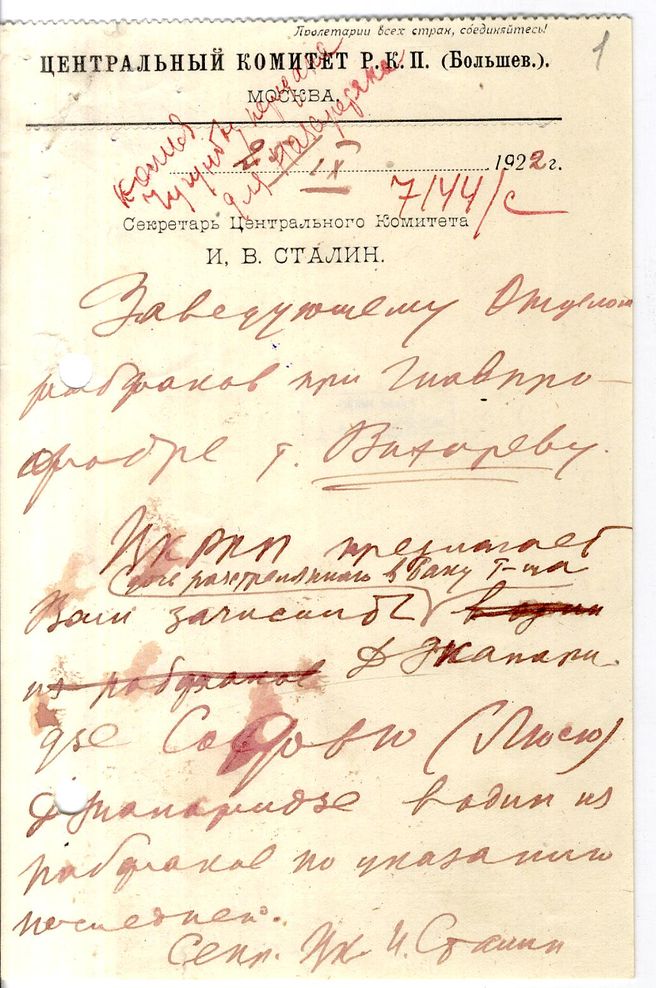 Пролетарии всех стран, соединяйтесь!
1
ЦЕНТРАЛЬНЫЙ КОМИТЕТ Р.К.П. (Большев.).
МОСКВА.
копия
передана
для
2 IX 1922 г.
7144/с
Секретарь Центрального Комитета
И. В. СТАЛИН.
Заведующему Отделом
рабфаков при Главпро-
фобре т. Вихореву.
ЦКРКП предлагает
дочь расстрелянного в Баку т-ща
Вам зачислить в один
из рабфаков Джапари
дзе Софью (Люсю)
Джапаридзе в один из
рабфаков по указанию
последней.
Секр. Цк. И. Сталин